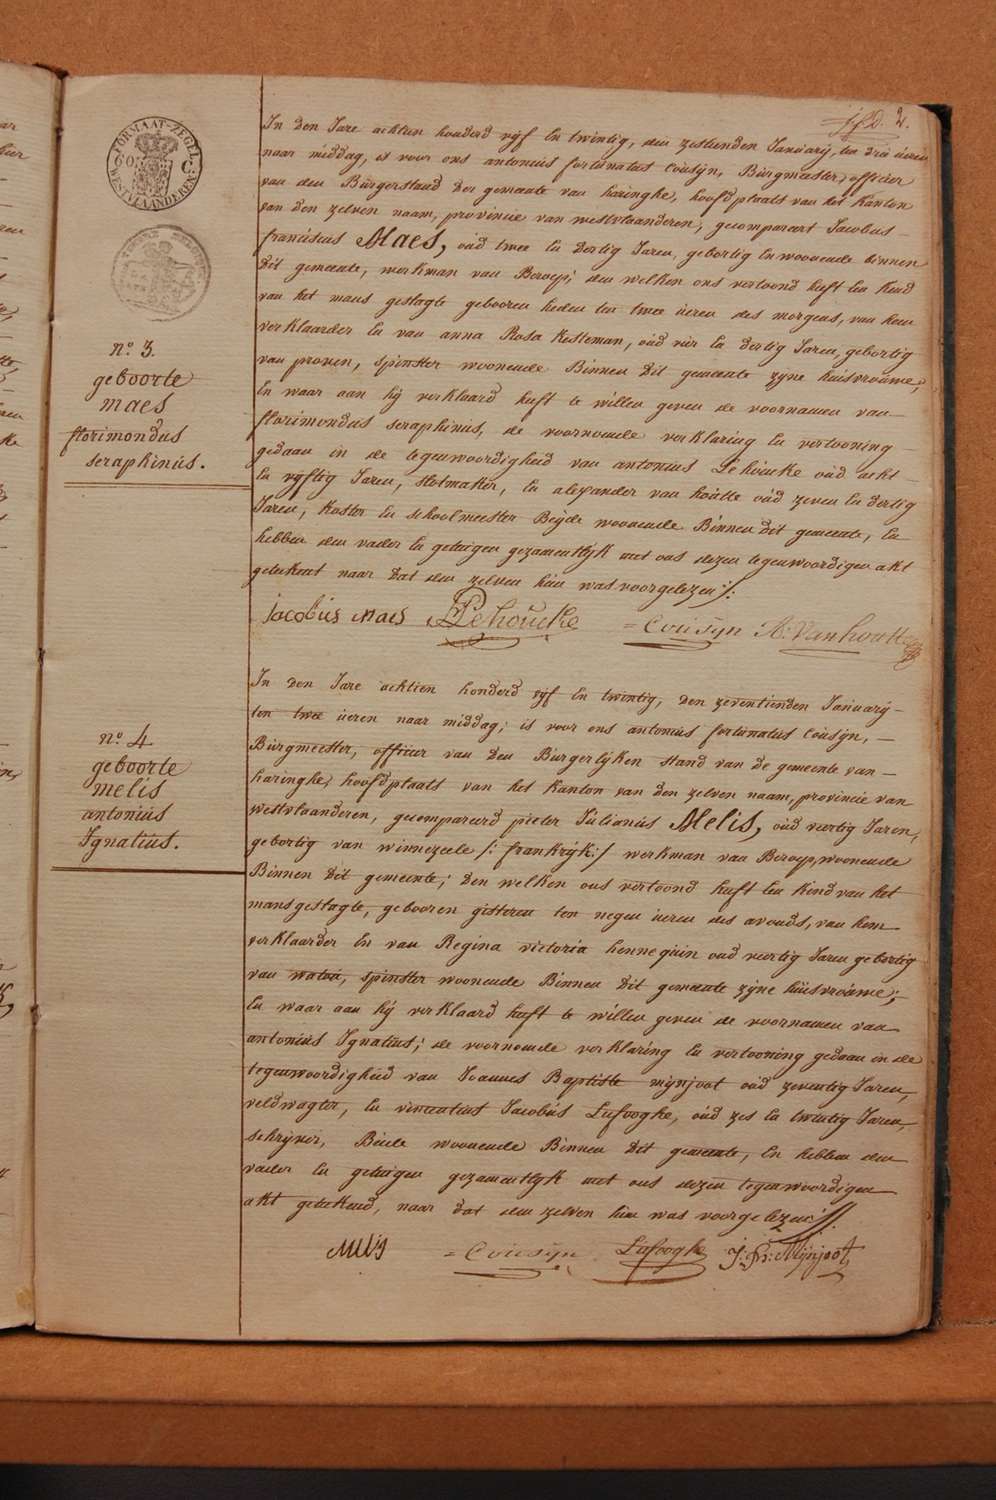 ffd. 2.
FORMAAT-ZEGEL
60 C.
WESTVLAANDEREN
In den Jare achtien honderd vijf En twintig, den zestienden January, ten drie ueren
naar middag, is voor ons antonius fortunatus Cousyn, Burgmeester, officier
van den Burgerstand der gemeente van haringhe, hoofdplaats van het Kanton
van den zelven naam, provincie van westvlaanderen, gecompareert Jacobus
franciscus Maes, oud twee En dertig Jaren, gebortig En woonende binnen
dit gemeente, werkman van Beroep; den welken ons vertoond heeft Een kind
van het mans geslagte gebooren heden ten twee ueren des morgens, van hem
verklaarder En van anna Rosa Kesteman, oud vier En dertig Jaren, gebortig
van proven, spinster woonende Binnen dit gemeente zyne huisvrouwe;
En waar aan hy verklaard heeft te willen geven de voornamen van
florimondus seraphinus, de voornoemde verklaring En vertooning
gedaan in de tegenwoordigheid van antonius Dehoucke oud acht
En vyftig Jaren, slotmaker, En alexander van houtte oud zeven En dertig
Jaren, Koster En schoolmeester Beyde woonende Binnen dit gemeente, En
hebben den vader En getuigen gezamentlyk met ons dezen tegenwoordigen akt
getekent naar dat den zelven hun was voorgelezen ∕:
jacobus Maes Dehoucke = Cousyn A: Vanhoutte
n.o 3.
geboorte
maes
florimondus
seraphinus.
In den Jare achtien honderd vyf En twintig, den zeventienden January
ten twee ueren naar middag; is voor ons antonius fortunatus Cousyn,
Burgmeester, officier van den Burgerlyken stand van de gemeente van
haringhe, hoofdplaats van het Kanton van den zelven naam, provincie van
westvlaanderen, gecompareerd pieter Julianus Melis, oud veertig Jaren,
gebortig van winnezeele /: frankryk:/ werkman van Beroep, woonende
Binnen dit gemeente; den welken ons vertoond heeft Een kind van het
mans geslagte, gebooren gisteren ten negen ueren des avonds, van hem
verklaarder En van Regina victoria hennequin oud veertig Jaren gebortig
van watou, spinster woonende Binnen dit gemeente zyne huisvrouwe;
En waar aan hy verklaard heeft te willen geven de voornamen van
antonius Ignatius; de voornoemde verklaring En vertooning gedaan in de
tegenwoordigheid van Joannes Baptiste mynjoot oud zeventig Jaren,
veldwagter, En vincentius Jacobus Lafooghe, oud zes En twintig Jaren,
schryver, Beide woonende Binnen dit gemeente, En hebben den
vader En getuigen gezamentlyk met ons dezen tegenwoordigen
akt getekend, naar dat den zelven hun was voorgelezen //.
Melis = Cousyn Lafooghe J: B: Mynjoot
n.o 4
geboorte
melis
antonius
Ignatius.